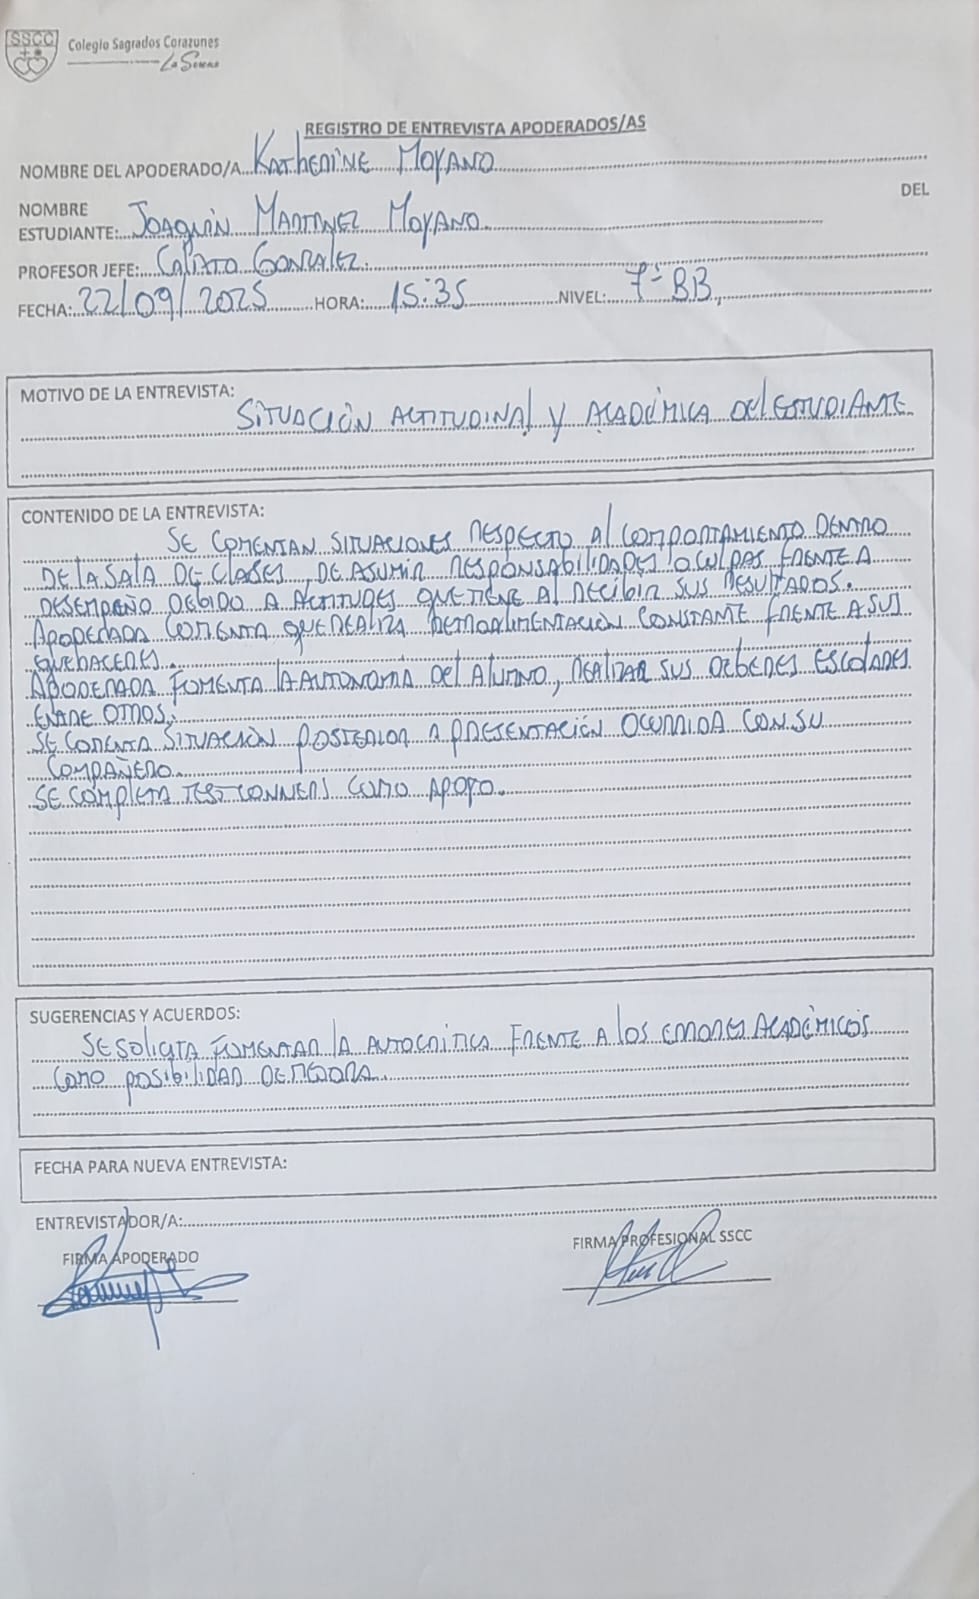 SSCC
Colegio Sagrados Corazones
La Serena
REGISTRO DE ENTREVISTA APODERADOS/AS
NOMBRE DEL APODERADO/A KATHERINE MOYANO
NOMBRE DEL
ESTUDIANTE: JOAQUÍN MARTINEZ MOYANO
PROFESOR JEFE: CALIXTO GONZALEZ.
FECHA: 22/09/2025 HORA: 15:35 NIVEL: 7º BB,
MOTIVO DE LA ENTREVISTA:
SITUACIÓN ACTITUDINAL Y ACADÉMICA DEL ESTUDIANTE
CONTENIDO DE LA ENTREVISTA:
SE COMENTAN SITUACIONES RESPECTO AL COMPORTAMIENTO DENTRO
DE LA SALA DE CLASES, DE ASUMIR RESPONSABILIDADES O CULPAS FRENTE A
DESEMPEÑO DEBIDO A ACTITUDES QUE TIENE AL RECIBIR SUS RESULTADOS.
APODERADA COMENTA QUE REALIZA RETROALIMENTACIÓN CONSTANTE FRENTE A SUS
QUEHACERES.
APODERADA FOMENTA LA AUTONOMIA DEL ALUMNO, REALIZAR SUS DEBERES ESCOLARES
ENTRE OTROS.
SE COMENTA SITUACIÓN POSTERIOR A PRESENTACIÓN OCURRIDA CON SU
COMPAÑERO.
SE COMPLETA TEST CONNERS COMO APOYO.
SUGERENCIAS Y ACUERDOS:
SE SOLICITA FOMENTAR LA AUTOCRITICA FRENTE A LOS ERRORES ACADÉMICOS
COMO POSIBILIDAD DE MEJORA.
FECHA PARA NUEVA ENTREVISTA:
ENTREVISTADOR/A:
FIRMA APODERADO FIRMA PROFESIONAL SSCC